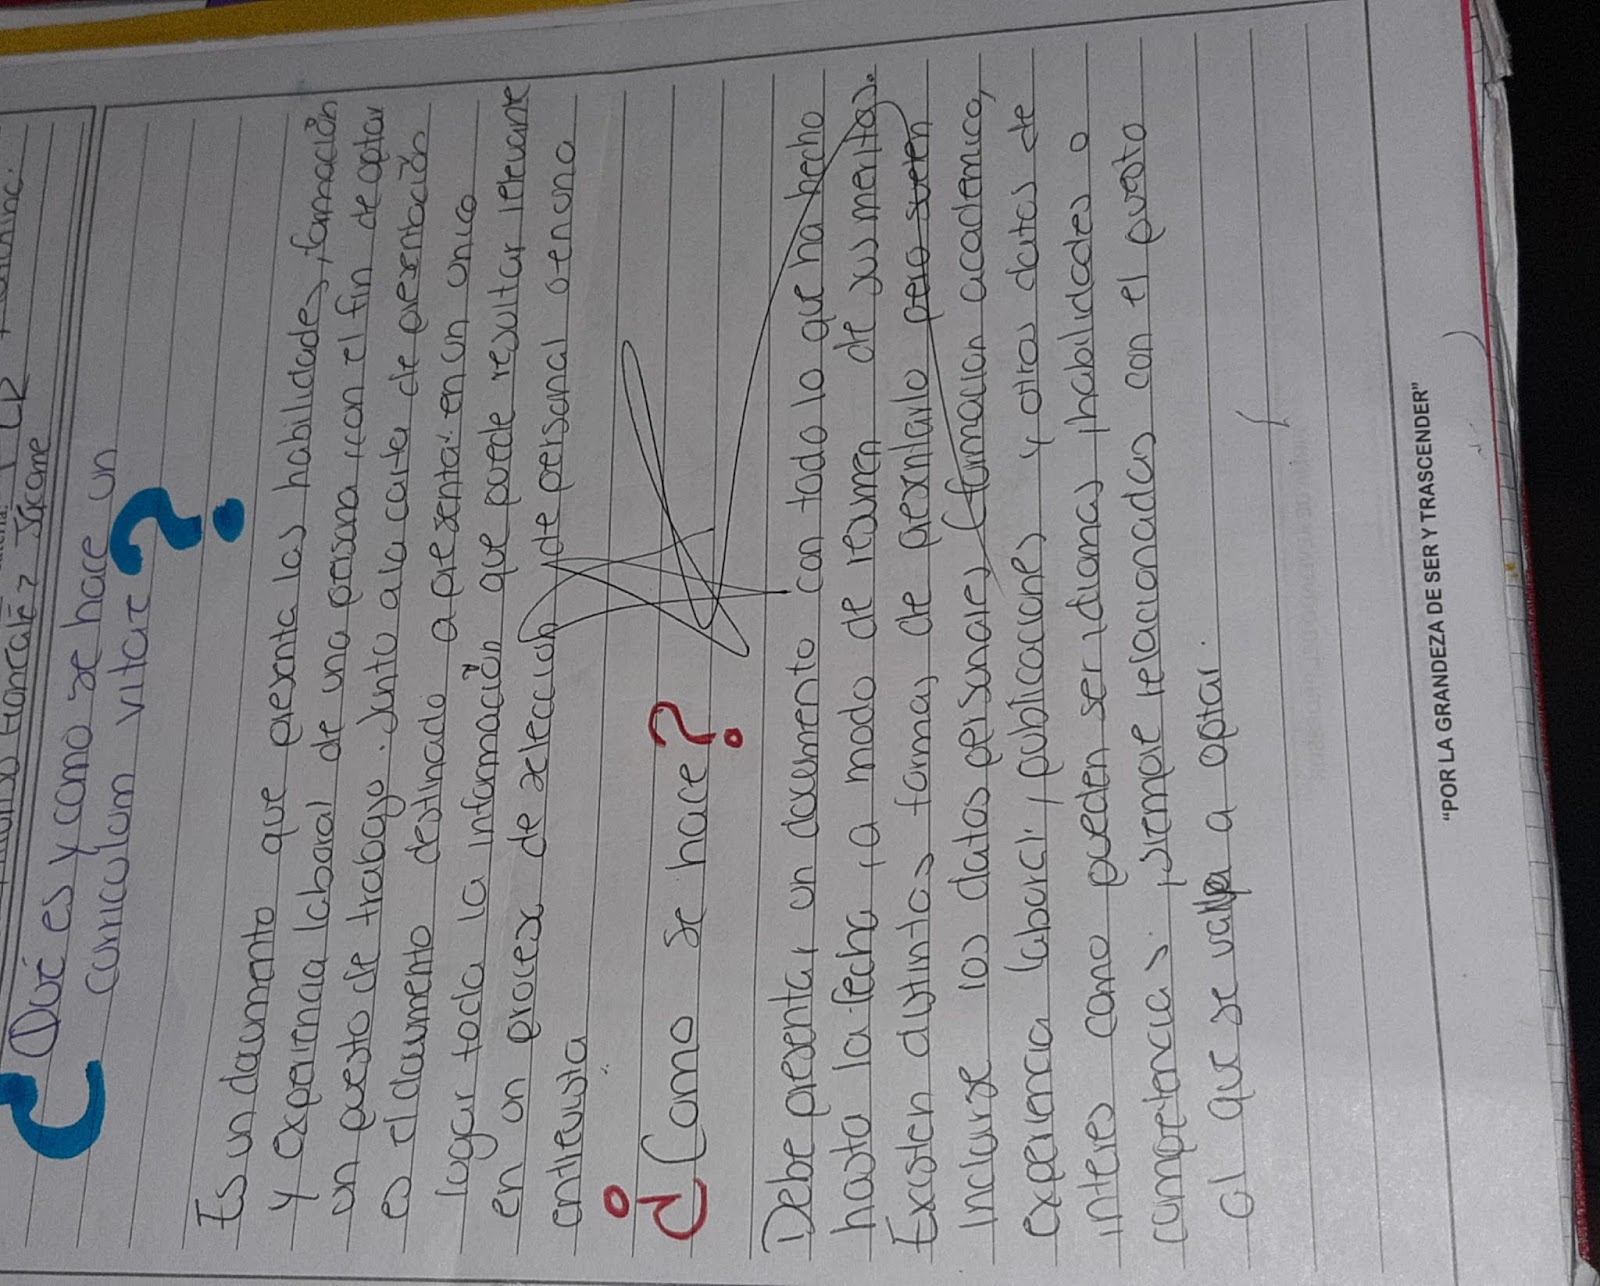 González Jocane
Qué es y como se hace un
curriculum vitae?
Es un documento que presenta las habilidades, formación
y experiencia laboral de una persona, con el fin de optar
un puesto de trabajo. Junto a la carta de presentación
es el documento destinado a presentar en un unico
lugar toda la información que puede resultar relevante
en un proceso de selección, de personal o en una
entrevista
¿Como se hace?
Debe presentar un documento con todo lo que ha hecho
hasta la fecha, a modo de resumen de sus meritos.
Existen distintas formas de presentarlo pero suelen
incluirse los datos personales, formacion academica,
experiencia laboral, publicaciones y otros datos de
interes como pueden ser idiomas, habilidades o
competencias, siempre relacionadas con el puesto
al que se valla a optar.
"POR LA GRANDEZA DE SER Y TRASCENDER"